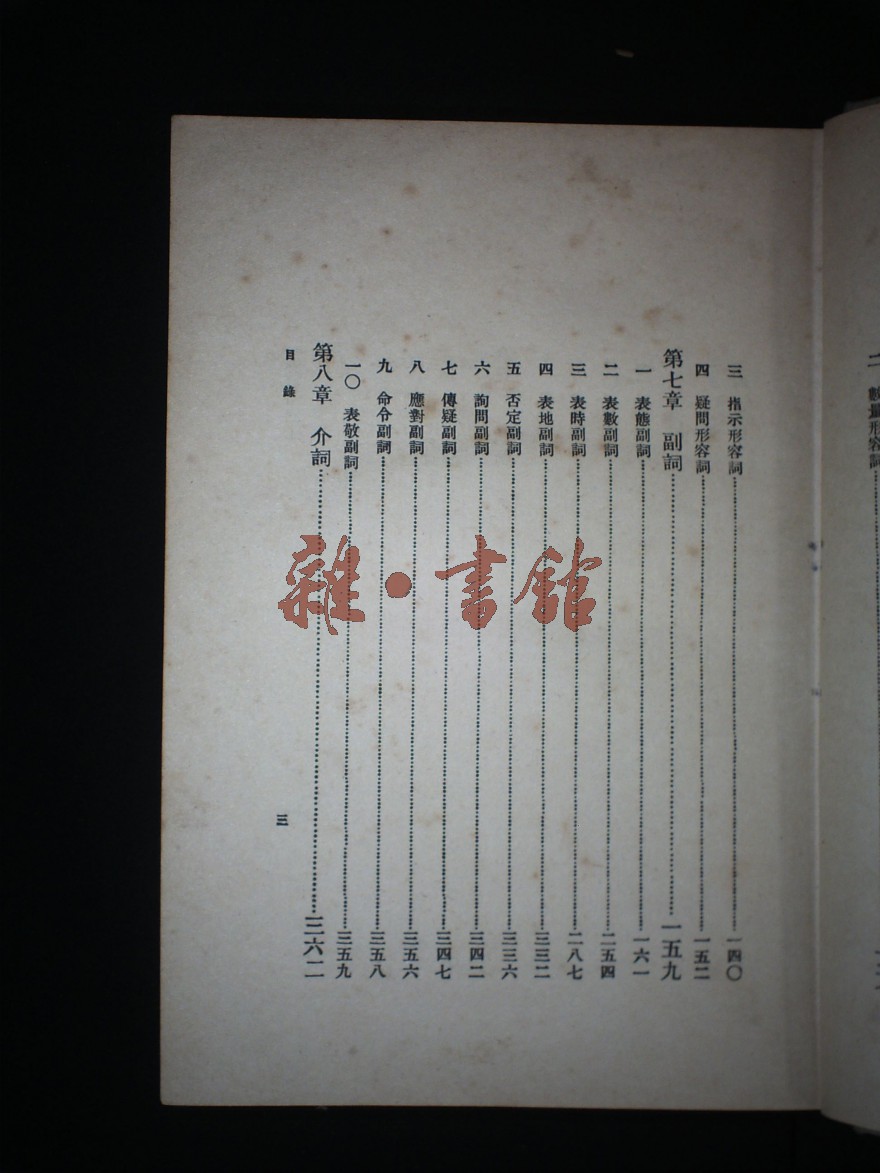 三　指示形容詞……一四〇
四　疑問形容詞……一五二
第七章　副詞……一五九
一　表態副詞……一六一
二　表數副詞……二五四
三　表時副詞……二八七
四　表地副詞……三三二
五　否定副詞……三三六
六　詢問副詞……三四二
七　傳疑副詞……三四七
八　應對副詞……三五六
九　命令副詞……三五八
一〇　表敬副詞……三五九
第八章　介詞……三六二
目錄
三
雜·書館
二　數量形容詞